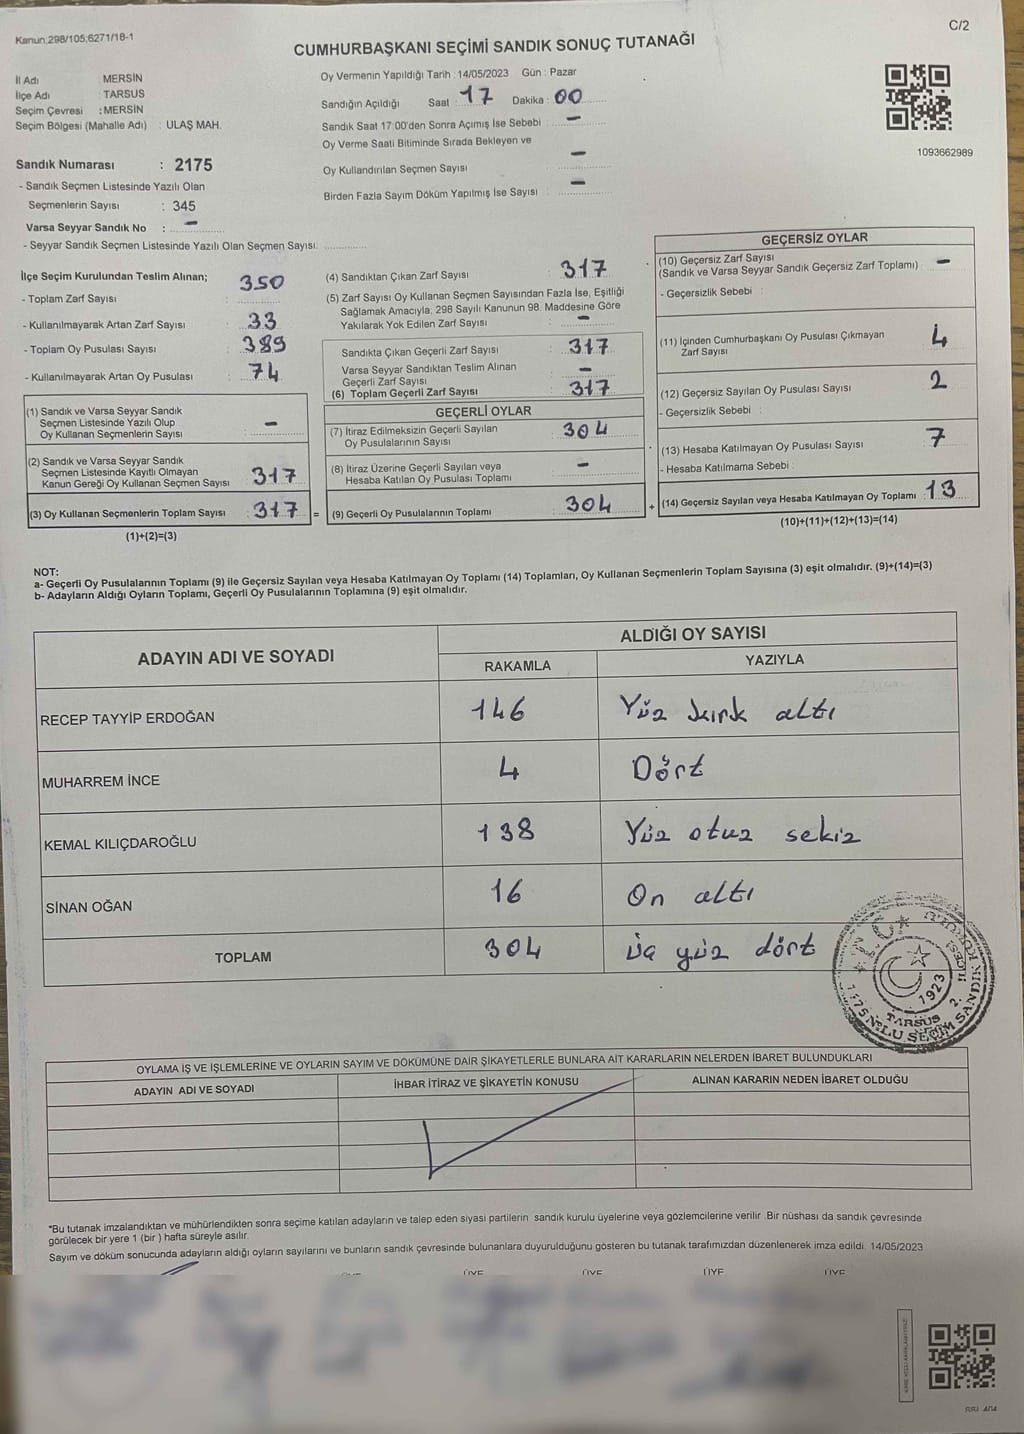 Kanun;298/105;6271/18-1
C/2
CUMHURBAŞKANI SEÇİMİ SANDIK SONUÇ TUTANAĞI
İl Adı : MERSİN
İlçe Adı : TARSUS
Seçim Çevresi : MERSİN
Seçim Bölgesi (Mahalle Adı) : ULAŞ MAH.
Sandık Numarası : 2175
- Sandık Seçmen Listesinde Yazılı Olan
Seçmenlerin Sayısı : 345
Varsa Seyyar Sandık No : -
- Seyyar Sandık Seçmen Listesinde Yazılı Olan Seçmen Sayısı:
Oy Vermenin Yapıldığı Tarih : 14/05/2023 Gün : Pazar
Sandığın Açıldığı Saat : 17 Dakika : 00
Sandık Saat 17:00'den Sonra Açımış İse Sebebi : -
Oy Verme Saati Bitiminde Sırada Bekleyen ve
Oy Kullandırılan Seçmen Sayısı : -
Birden Fazla Sayım Döküm Yapılmış İse Sayısı : -
1093662989
İlçe Seçim Kurulundan Teslim Alınan;
- Toplam Zarf Sayısı : 350
- Kullanılmayarak Artan Zarf Sayısı : 33
- Toplam Oy Pusulası Sayısı : 389
- Kullanılmayarak Artan Oy Pusulası : 74
(1) Sandık ve Varsa Seyyar Sandık
Seçmen Listesinde Yazılı Olup
Oy Kullanan Seçmenlerin Sayısı : -
(2) Sandık ve Varsa Seyyar Sandık
Seçmen Listesinde Kayıtlı Olmayan
Kanun Gereği Oy Kullanan Seçmen Sayısı : 317
(3) Oy Kullanan Seçmenlerin Toplam Sayısı : 317 =
(1)+(2)=(3)
(4) Sandıktan Çıkan Zarf Sayısı : 317
(5) Zarf Sayısı Oy Kullanan Seçmen Sayısından Fazla İse, Eşitliği
Sağlamak Amacıyla; 298 Sayılı Kanunun 98. Maddesine Göre
Yakılarak Yok Edilen Zarf Sayısı : -
Sandıkta Çıkan Geçerli Zarf Sayısı : 317
Varsa Seyyar Sandıktan Teslim Alınan
Geçerli Zarf Sayısı : -
(6) Toplam Geçerli Zarf Sayısı : 317
GEÇERLİ OYLAR
(7) İtiraz Edilmeksizin Geçerli Sayılan
Oy Pusulalarının Sayısı : 304
(8) İtiraz Üzerine Geçerli Sayılan veya
Hesaba Katılan Oy Pusulası Toplamı : -
(9) Geçerli Oy Pusulalarının Toplamı : 304 +
GEÇERSİZ OYLAR
(10) Geçersiz Zarf Sayısı : -
(Sandık ve Varsa Seyyar Sandık Geçersiz Zarf Toplamı)
- Geçersizlik Sebebi :
(11) İçinden Cumhurbaşkanı Oy Pusulası Çıkmayan
Zarf Sayısı : 4
(12) Geçersiz Sayılan Oy Pusulası Sayısı : 2
- Geçersizlik Sebebi :
(13) Hesaba Katılmayan Oy Pusulası Sayısı : 7
- Hesaba Katılmama Sebebi :
(14) Geçersiz Sayılan veya Hesaba Katılmayan Oy Toplamı : 13
(10)+(11)+(12)+(13)=(14)
NOT:
a- Geçerli Oy Pusulalarının Toplamı (9) ile Geçersiz Sayılan veya Hesaba Katılmayan Oy Toplamı (14) Toplamları, Oy Kullanan Seçmenlerin Toplam Sayısına (3) eşit olmalıdır. (9)+(14)=(3)
b- Adayların Aldığı Oyların Toplamı, Geçerli Oy Pusulalarının Toplamına (9) eşit olmalıdır.
ADAYIN ADI VE SOYADI
ALDIĞI OY SAYISI
RAKAMLA YAZIYLA
RECEP TAYYİP ERDOĞAN 146 Yüz kırk altı
MUHARREM İNCE 4 Dört
KEMAL KILIÇDAROĞLU 138 Yüz otuz sekiz
SİNAN OĞAN 16 On altı
TOPLAM 304 üç yüz dört
T.C.
1923
TARSUS 2.
OYLAMA İŞ VE İŞLEMLERİNE VE OYLARIN SAYIM VE DÖKÜMÜNE DAİR ŞİKAYETLERLE BUNLARA AİT KARARLARIN NELERDEN İBARET BULUNDUKLARI
ADAYIN ADI VE SOYADI İHBAR İTİRAZ VE ŞİKAYETİN KONUSU ALINAN KARARIN NEDEN İBARET OLDUĞU
*Bu tutanak imzalandıktan ve mühürlendikten sonra seçime katılan adayların ve talep eden siyasi partilerin sandık kurulu üyelerine veya gözlemcilerine verilir .Bir nüshası da sandık çevresinde
görülecek bir yere 1 (bir ) hafta süreyle asılır.
Sayım ve döküm sonucunda adayların aldığı oyların sayılarını ve bunların sandık çevresinde bulunanlara duyurulduğunu gösteren bu tutanak tarafımızdan düzenlenerek imza edildi. 14/05/2023
ÜYE ÜYE ÜYE ÜYE